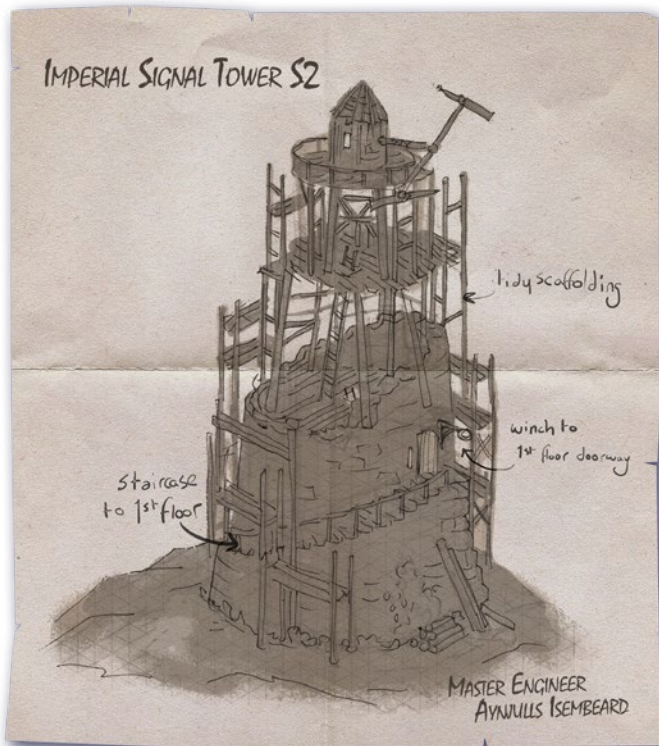 IMPERIAL SIGNAL TOWER S2
tidy scaffolding
winch to
1st floor doorway
staircase
to 1st floor
MASTER ENGINEER
AYNJULLS ISEMBEARD